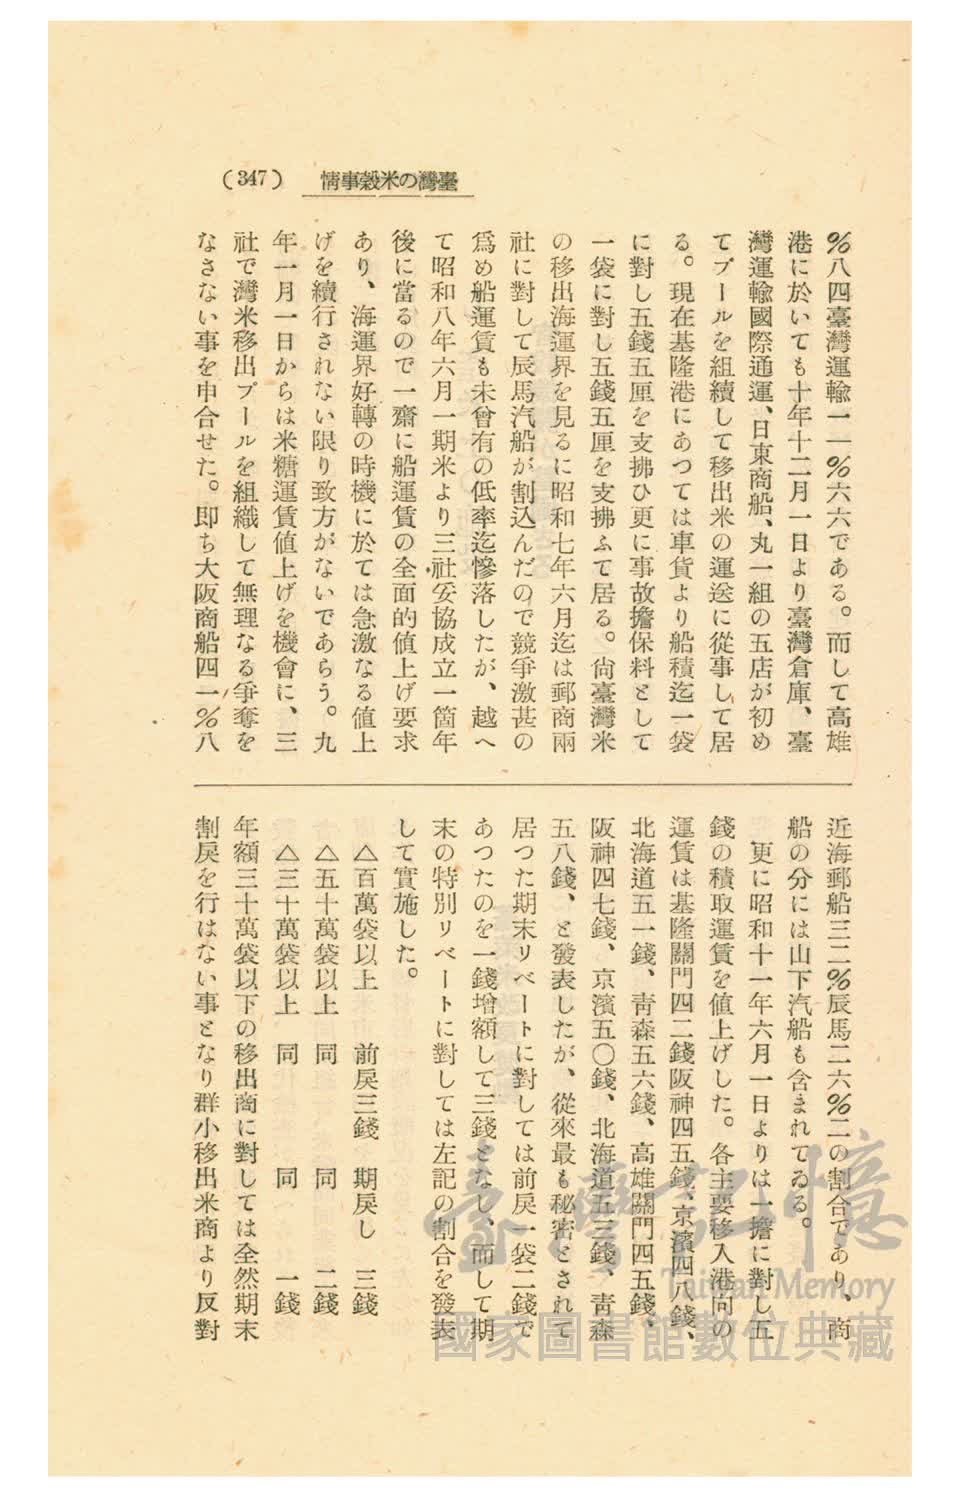 (347) 情事穀米の灣臺
％八四臺灣運輸一一％六六である。而して高雄
港に於いても十年十二月一日より臺灣倉庫、臺
灣運輸國際通運、日東商船、丸一組の五店が初め
てプールを組續して移出米の運送に從事して居
る。現在基隆港にあつては車貨より船積迄一袋
に對し五錢五厘を支拂ひ更に事故擔保料として
一袋に對し五錢五厘を支拂ふて居る。尙臺灣米
の移出海運界を見るに昭和七年六月迄は郵商兩
社に對して辰馬汽船が割込んだので競爭激甚の
爲め船運賃も未曾有の低率迄慘落したが、越へ
て昭和八年六月一期米より三社妥協成立一箇年
後に當るので一齋に船運賃の全面的値上げ要求
あり、海運界好轉の時機に於ては急激なる値上
げを續行されない限り致方がないであらう。九
年一月一日からは米糖運賃値上げを機會に、三
社で灣米移出プールを組織して無理なる爭奪を
なさない事を申合せた。卽ち大阪商船四一％八
近海郵船三二％辰馬二六％二の割合であり、商
船の分には山下汽船も含まれてゐる。
更に昭和十一年六月一日よりは一擔に對し五
錢の積取運賃を値上げした。各主要移入港向の
運賃は基隆關門四二錢阪神四五錢、京濱四八錢、
北海道五一錢、靑森五六錢、高雄關門四五錢、
阪神四七錢、京濱五〇錢、北海道五三錢、靑森
五八錢、と發表したが、從來最も秘密とされて
居つた期末リベートに對しては前戾一袋二錢で
あつたのを一錢增額して三錢となし、而して期
末の特別リベートに對しては左記の割合を發表
して實施した。
△百萬袋以上 前戾三錢 期戾し 三錢
△五十萬袋以上 同 同 二錢
△三十萬袋以上 同 同 一錢
年額三十萬袋以下の移出商に對しては全然期末
割戾を行はない事となり群小移出米商より反對
臺灣記憶
Taiwan Memory
國家圖書館數位典藏